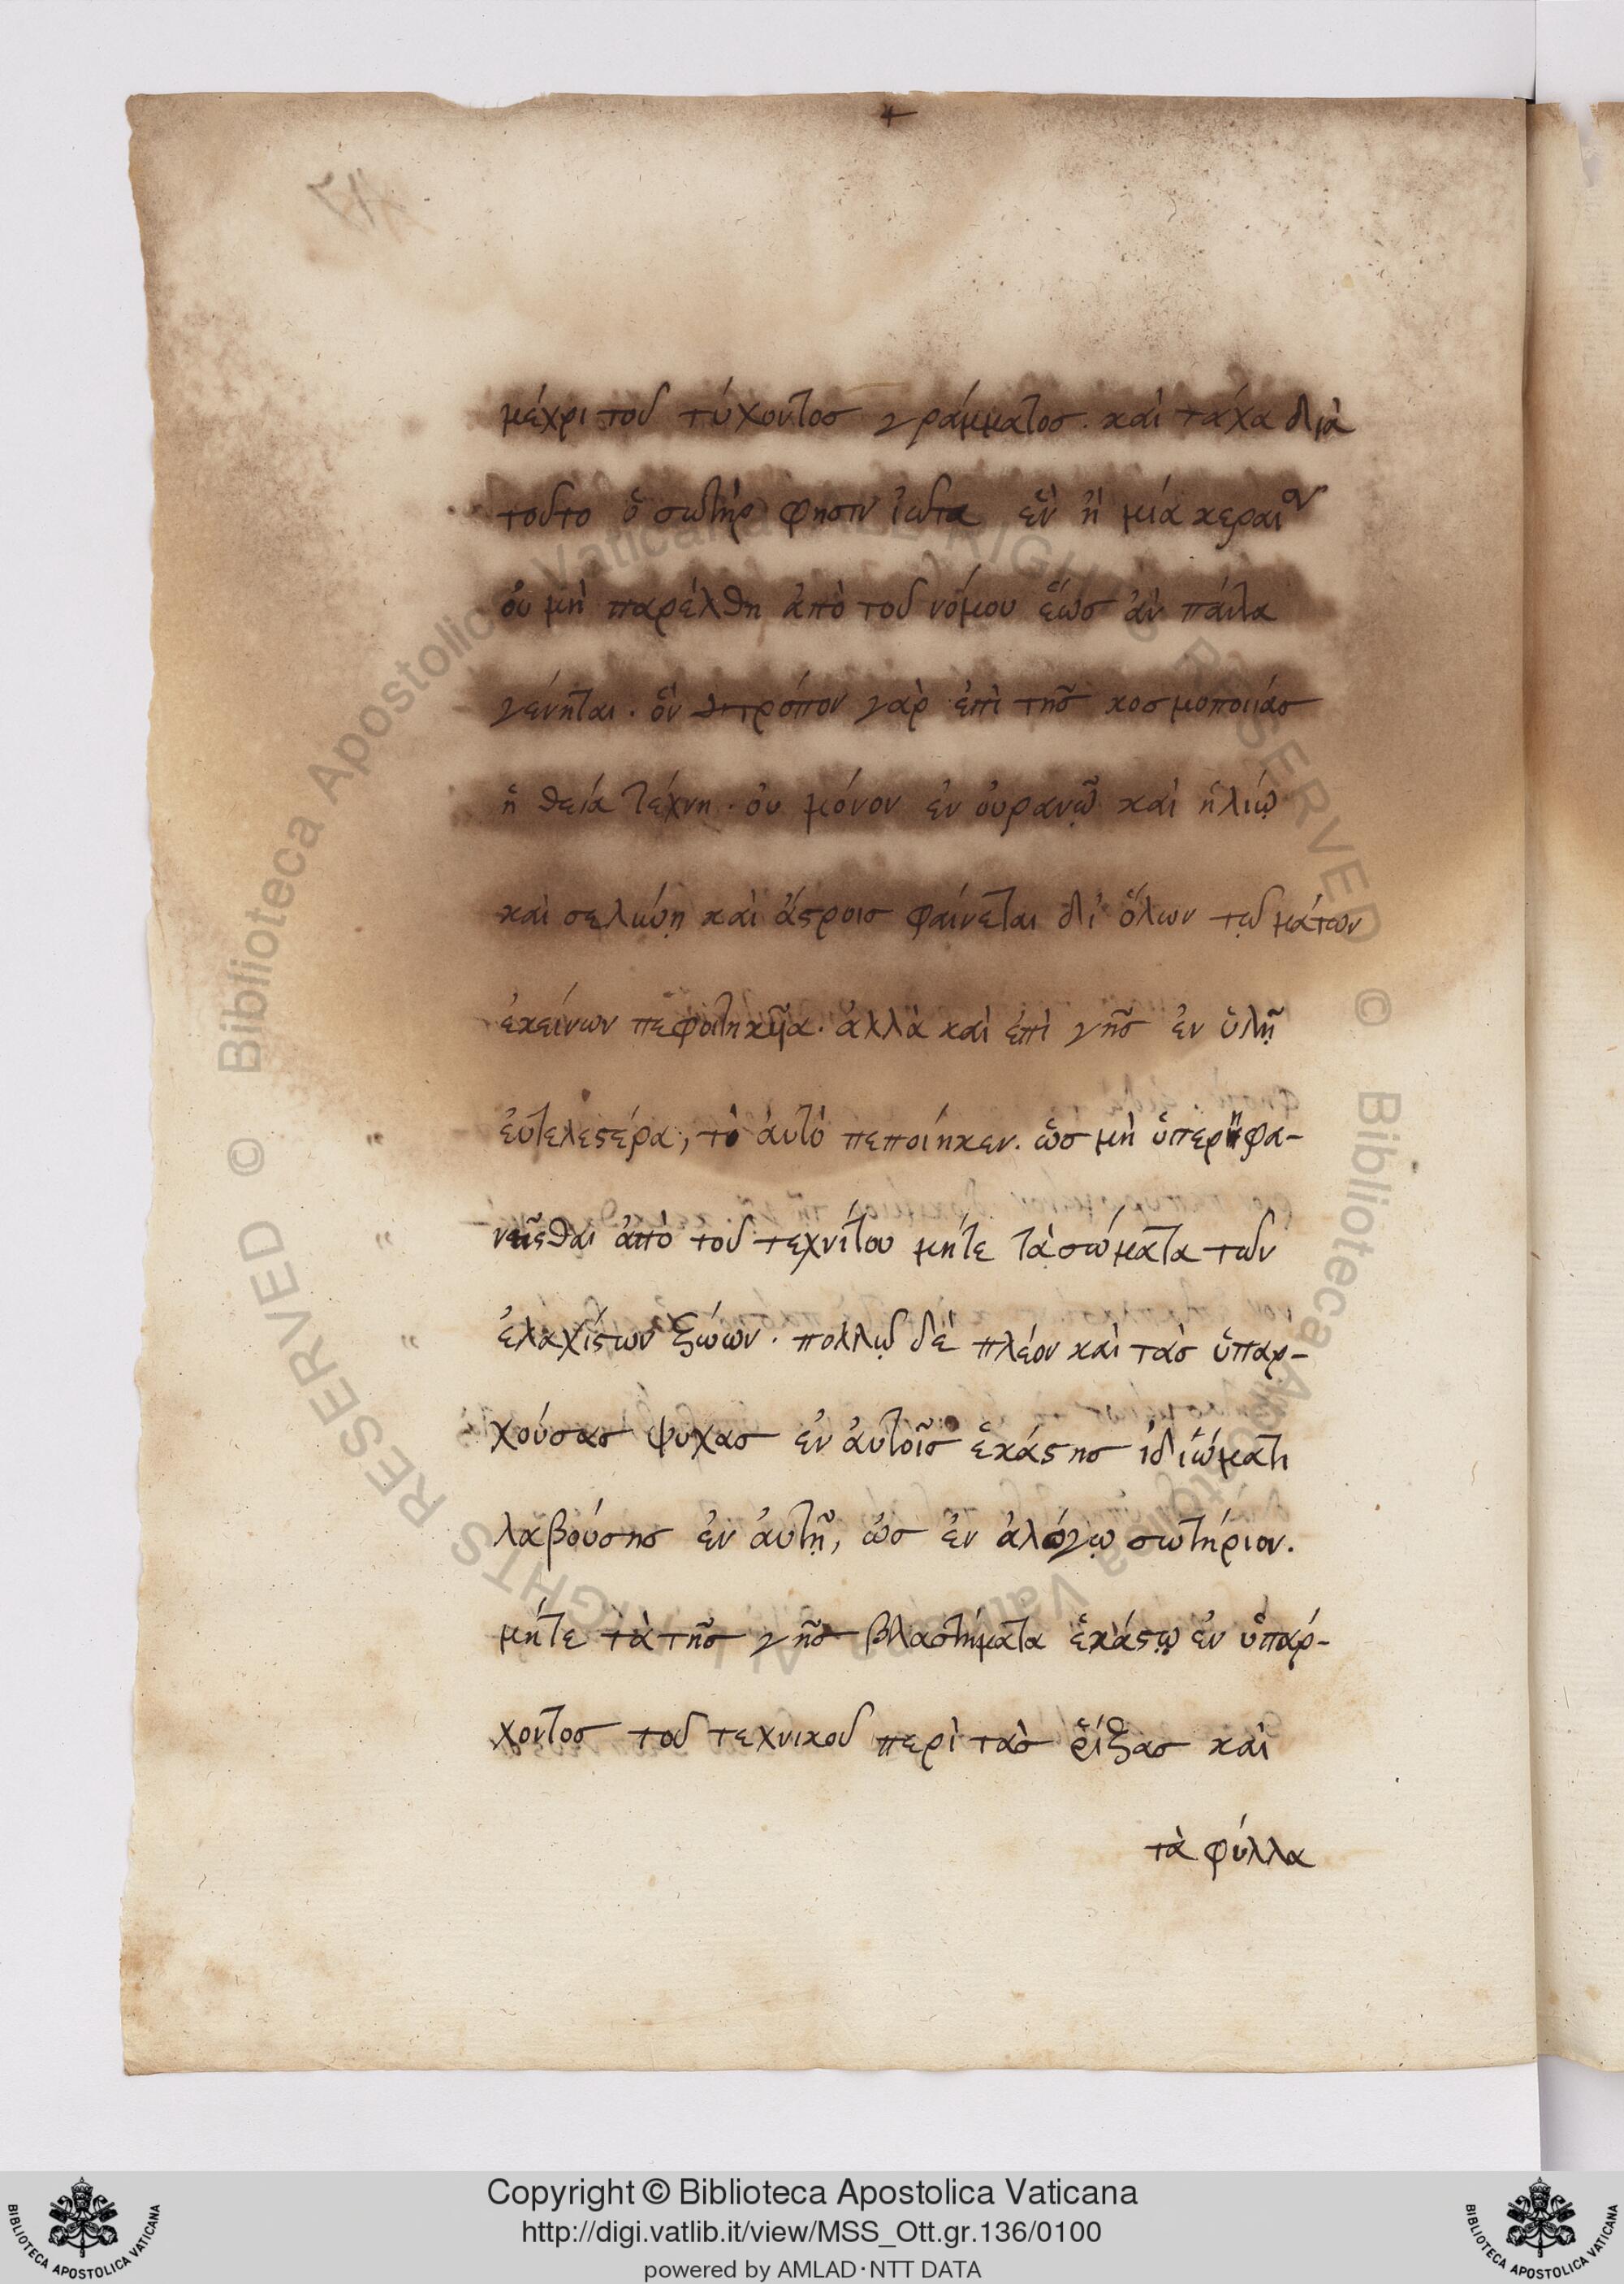 μέχρι τοῦ τύχοντος γράμματος. καὶ τάχα διὰ
τοῦτο ὁ σωτὴρ φησιν ἰωτα εν ἢ μία κεραι
ὀυ μὴ παρέλθη ἀπὸ τοῦ νόμου ἕως ἀν πάντα
γένηται. ὃν τρόπον γὰρ ἐπὶ τῆς κοσμοποιίας
ἡ θεία τέχνη. ὀυ μόνον ἐν ὀυρανῷ καὶ ἡλιῳ
καὶ σελήνη καὶ ἄστροις φαίνεται δι' ὅλων
ἐκείνων πεφοιτηκῦα. ἀλλὰ καὶ ἐπὶ γῆς ἐν ὑλῇ
ἐυτελεστέρα, τὸ ἀυτὸ πεποίηκεν. ὡς μὴ ὑπερηφα-
νεῖσθαι ἀπὸ τοῦ τεχνίτου μήτε τὰ σώματα τῶν
ἐλαχίστων ζώων. πολλῷ δὲ πλέον καὶ τὰς ὑπαρ-
χούσας ψυχας ἐν ἀυτοῖς ἑκάστης ἰδιώματι
λαβούσης ἐν ἀυτῇ, ὡς ἐν ἀλόγῳ σωτήριον.
μήτε τὰ τῆς γῆς βλαστήματα ἑκάστῳ ἐν ὑπάρ-
χοντος τοῦ τεχνικοῦ περὶ τὰς ῥίζας καὶ
τὰ φύλλα
Copyright © Biblioteca Apostolica Vaticana
http://digi.vatlib.it/view/MSS_Ott.gr.136/0100
powered by AMLAD·NTT DATA